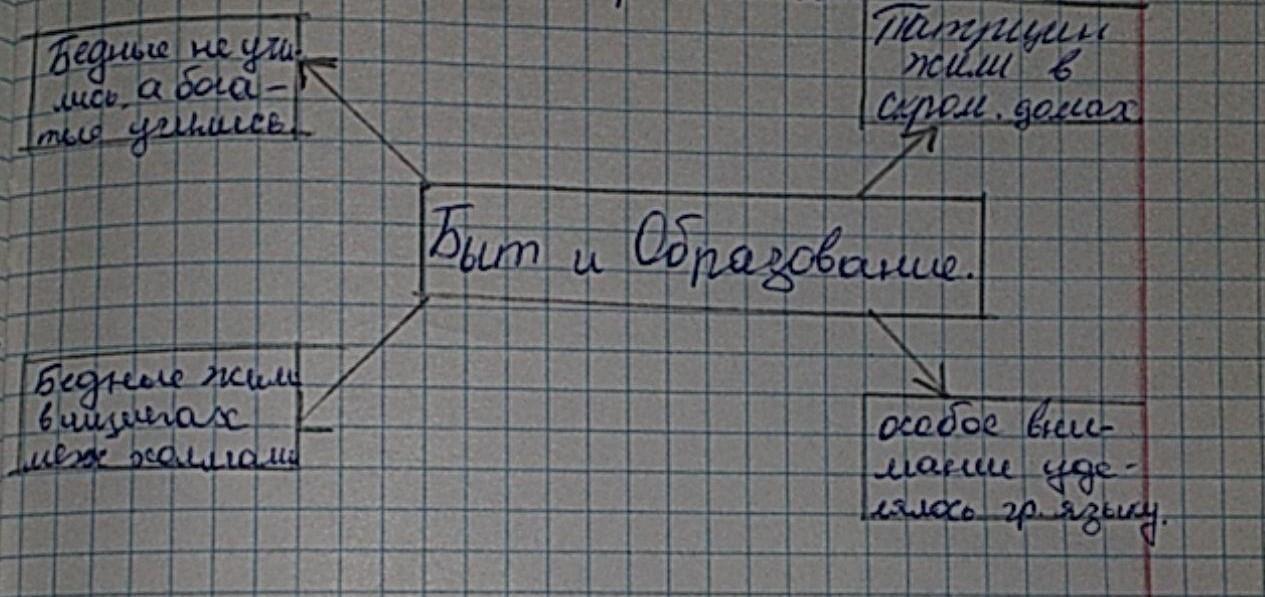 Бедные не учи-
лись, а бога-
тые учились
Патриции
жили в
скром. домах
Быт и Образование.
Бедные жили
в лищигах
меж холмами
особое вни-
мание уде-
лялось гр. языку.